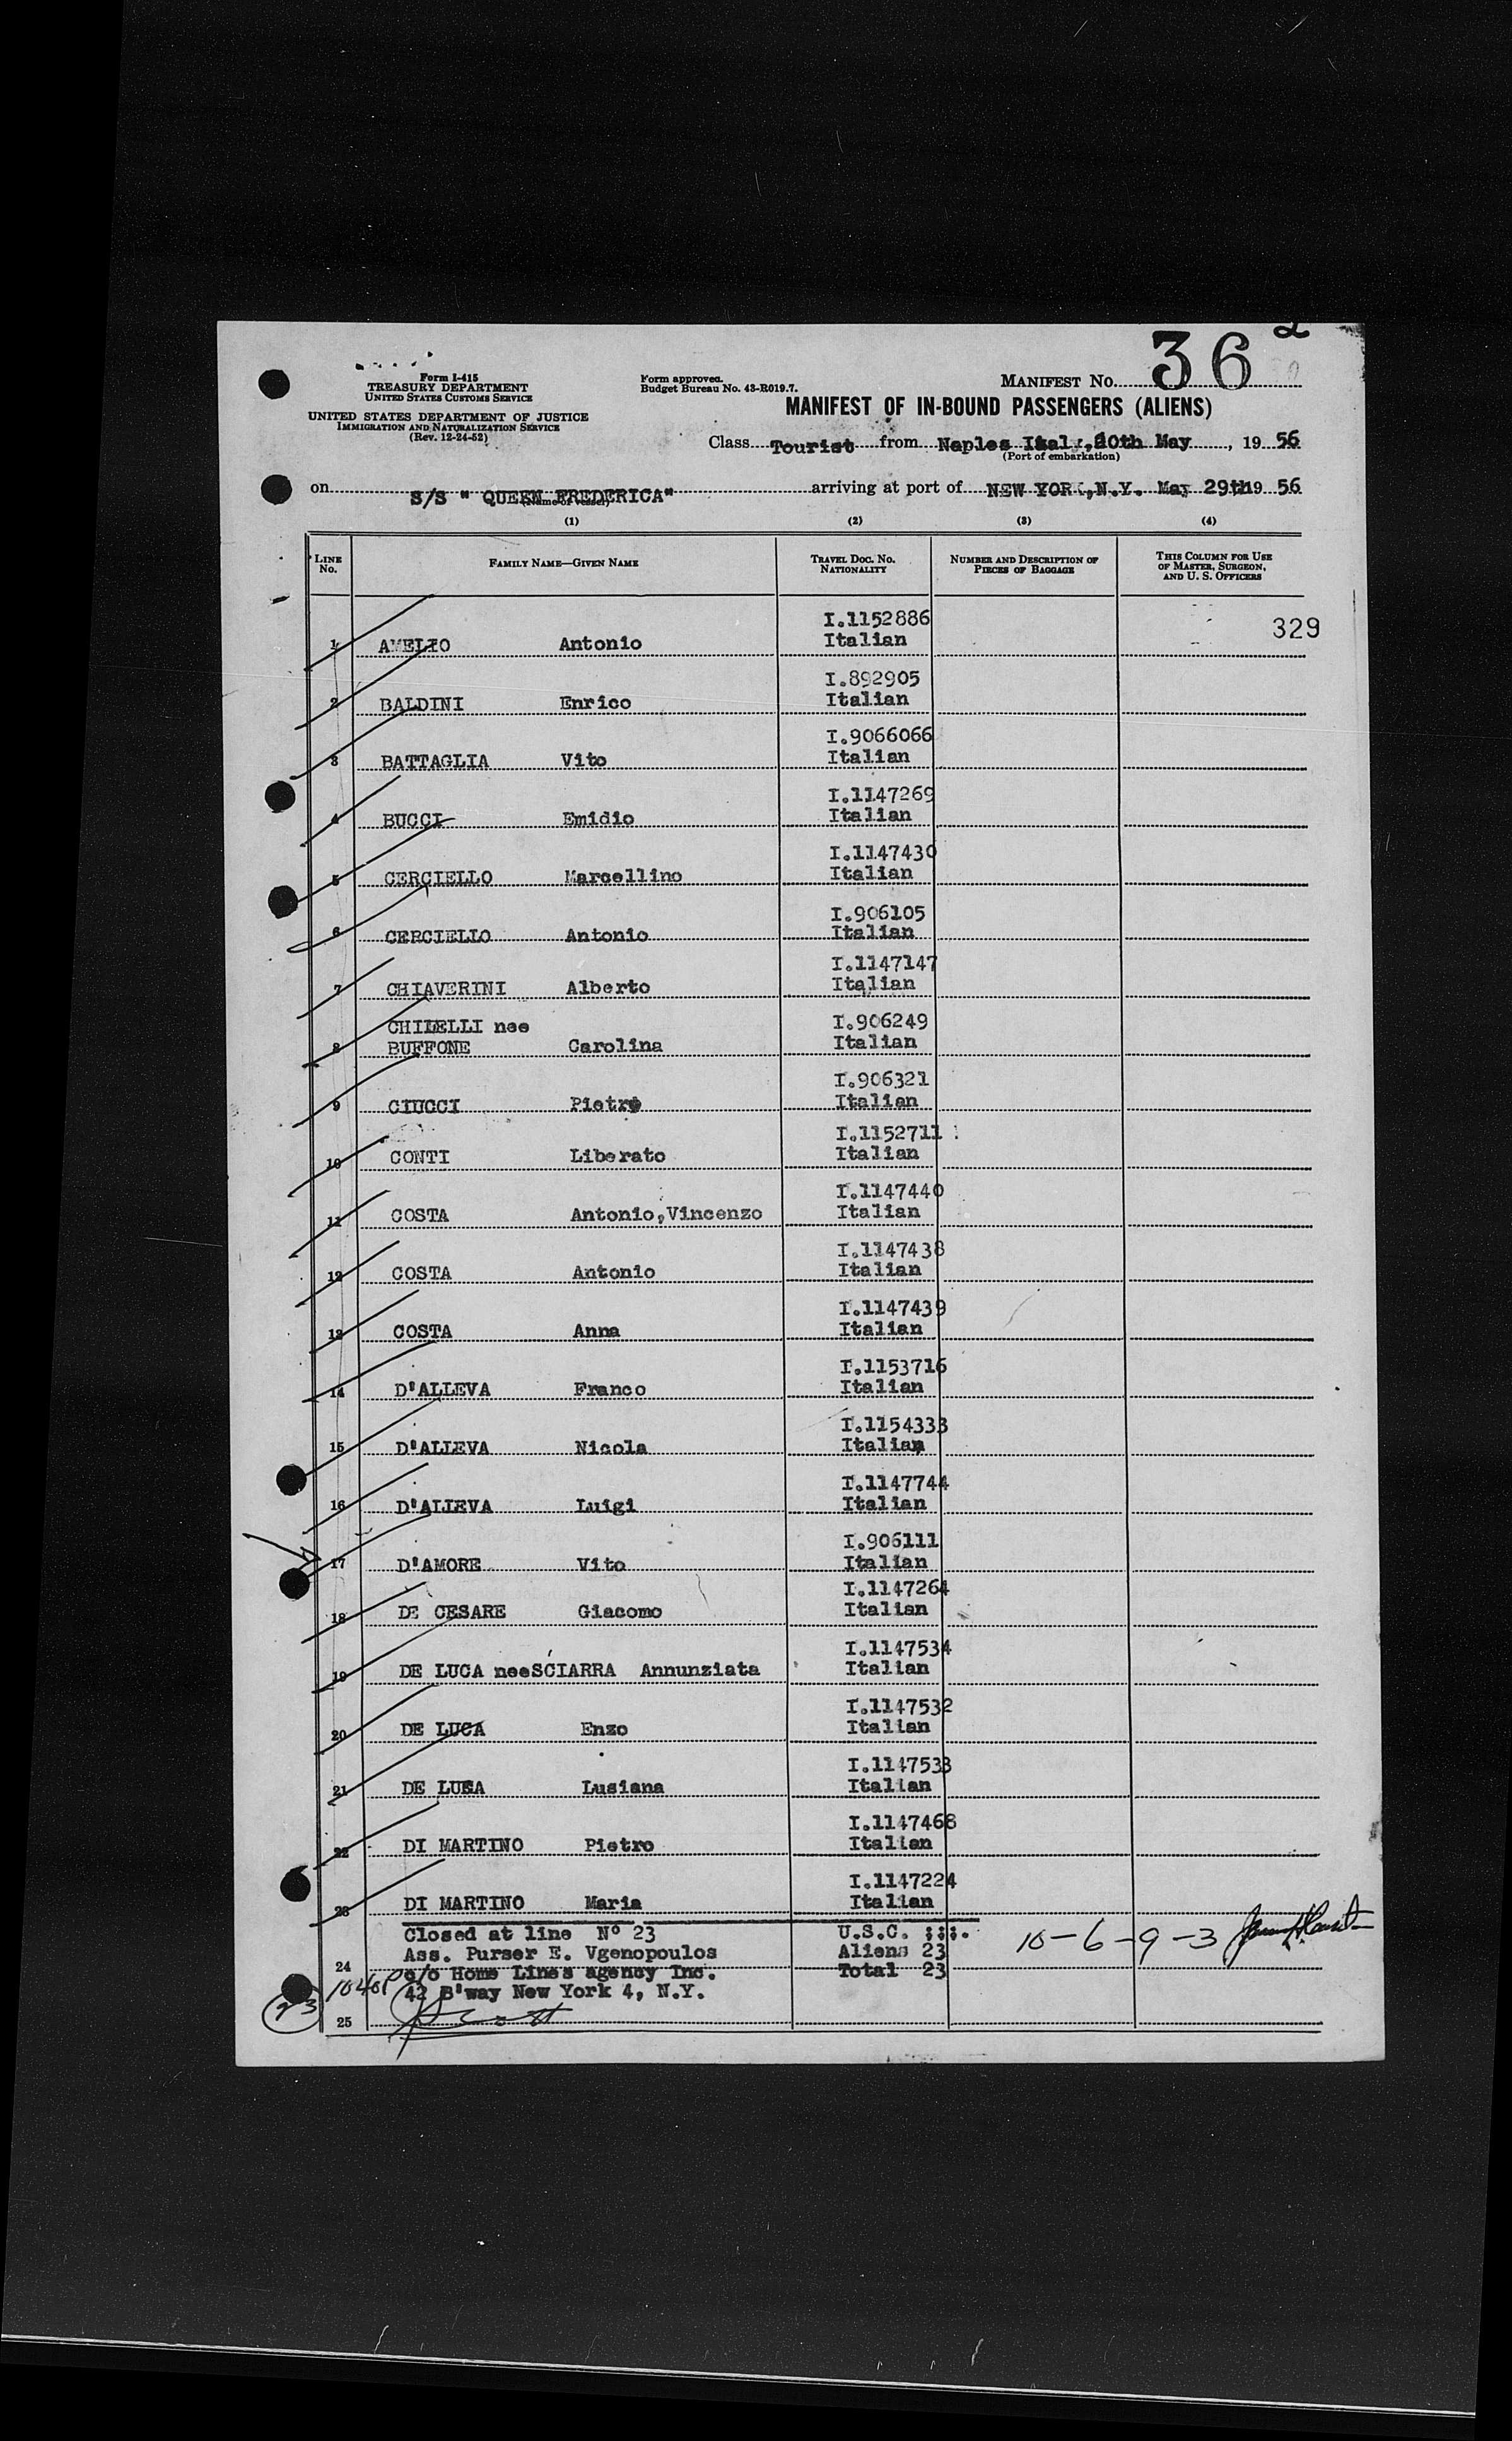 36
Form I-415
TREASURY DEPARTMENT
UNITED STATES CUSTOMS SERVICE
UNITED STATES DEPARTMENT OF JUSTICE
IMMIGRATION AND NATURALIZATION SERVICE
(Rev. 12-24-52)
Form approved.
Budget Bureau No. 43-R019.7.
MANIFEST NO.
MANIFEST OF IN-BOUND PASSENGERS (ALIENS)
Class Tourist from Naples Italy, 20th May, 19 56
(Port of embarkation)
on S/S " QUEEN FREDERICA" arriving at port of NEW YORK, N.Y. May 29th 19 56
(Name of vessel)
(1) (2) (3) (4)
LINE NO. FAMILY NAME—GIVEN NAME TRAVEL DOC. NO. NATIONALITY NUMBER AND DESCRIPTION OF PIECES OF BAGGAGE THIS COLUMN FOR USE OF MASTER, SURGEON, AND U. S. OFFICERS
329
I.1152886
1 AMELIO Antonio Italian
I.892905
2 BALDINI Enrico Italian
I.9066066
3 BATTAGLIA Vito Italian
I.1147269
4 BUCCI Emidio Italian
I.1147430
5 CERCIELLO Marcellino Italian
I.906105
6 CERCIELLO Antonio Italian
I.1147147
7 CHIAVERINI Alberto Italian
CHILELLI nee I.906249
8 BUFFONE Carolina Italian
I.906321
9 CIUCCI Pietro Italian
I.1152711
10 CONTI Liberato Italian
I.1147440
11 COSTA Antonio,Vincenzo Italian
I.1147438
12 COSTA Antonio Italian
I.1147439
13 COSTA Anna Italian
I.1153716
14 D'ALLEVA Franco Italian
I.1154333
15 D'ALLEVA Nicola Italian
I.1147744
16 D'ALLEVA Luigi Italian
I.906111
17 D'AMORE Vito Italian
I.1147264
18 DE CESARE Giacomo Italian
I.1147534
19 DE LUCA neeSCIARRA Annunziata Italian
I.1147532
20 DE LUCA Enzo Italian
I.1147533
21 DE LUCA Lusiana Italian
I.1147468
22 DI MARTINO Pietro Italian
I.1147224
23 DI MARTINO Maria Italian
Closed at line Nº 23 U.S.C. :::.
24 Ass. Purser E. Vgenopoulos Aliens 23 10-6-9-3
c/o Home Lines agency Inc. Total 23
42 B'way New York 4, N.Y.
23
25